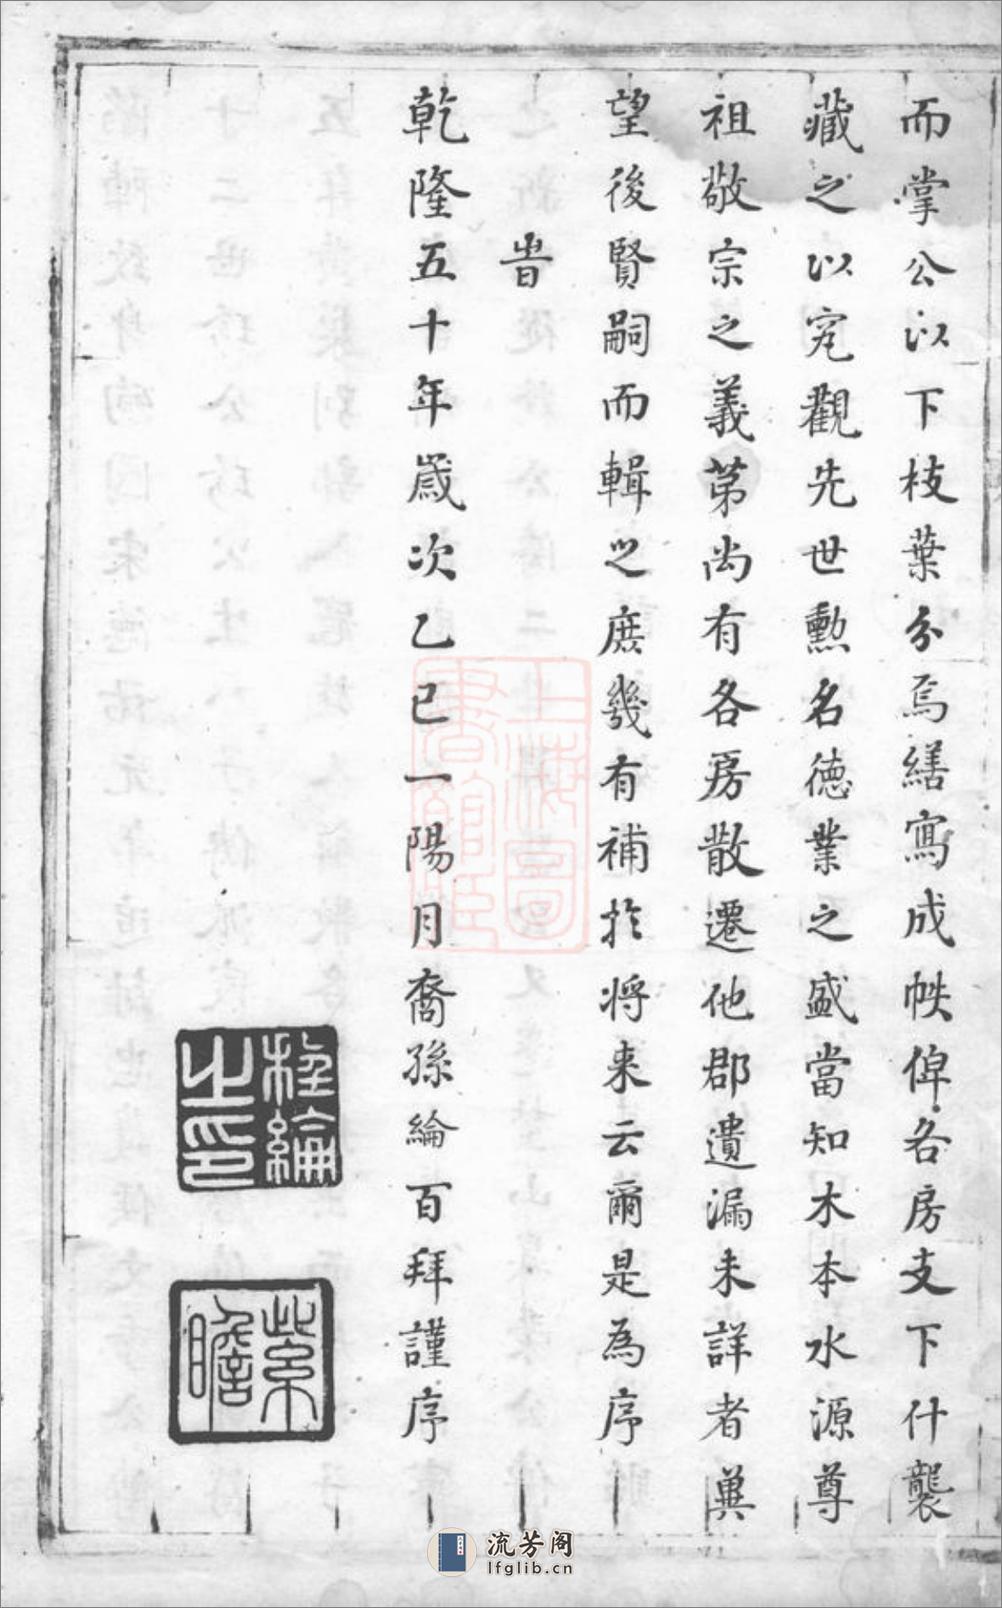 而掌公以下枝葉分焉繕寫成帙俾各房支下什襲
藏之以究觀先世勲名徳業之盛當知木本水源尊
祖敬宗之義苐尚有各房散遷他郡遺漏未詳者兾
望後賢嗣而輯之庶幾有補扵将来云爾是為序
旹
乾隆五十年歲次乙巳一陽月裔孫綸百拜謹序
程綸之印
紫瞻
上海圖書館藏
流芳阁
lfglib.cn